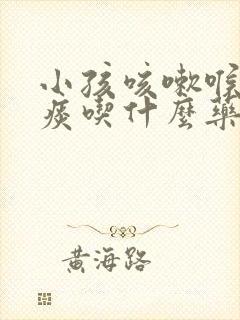 小孩咳嗽喉
痰喫什麼藥
黃海路